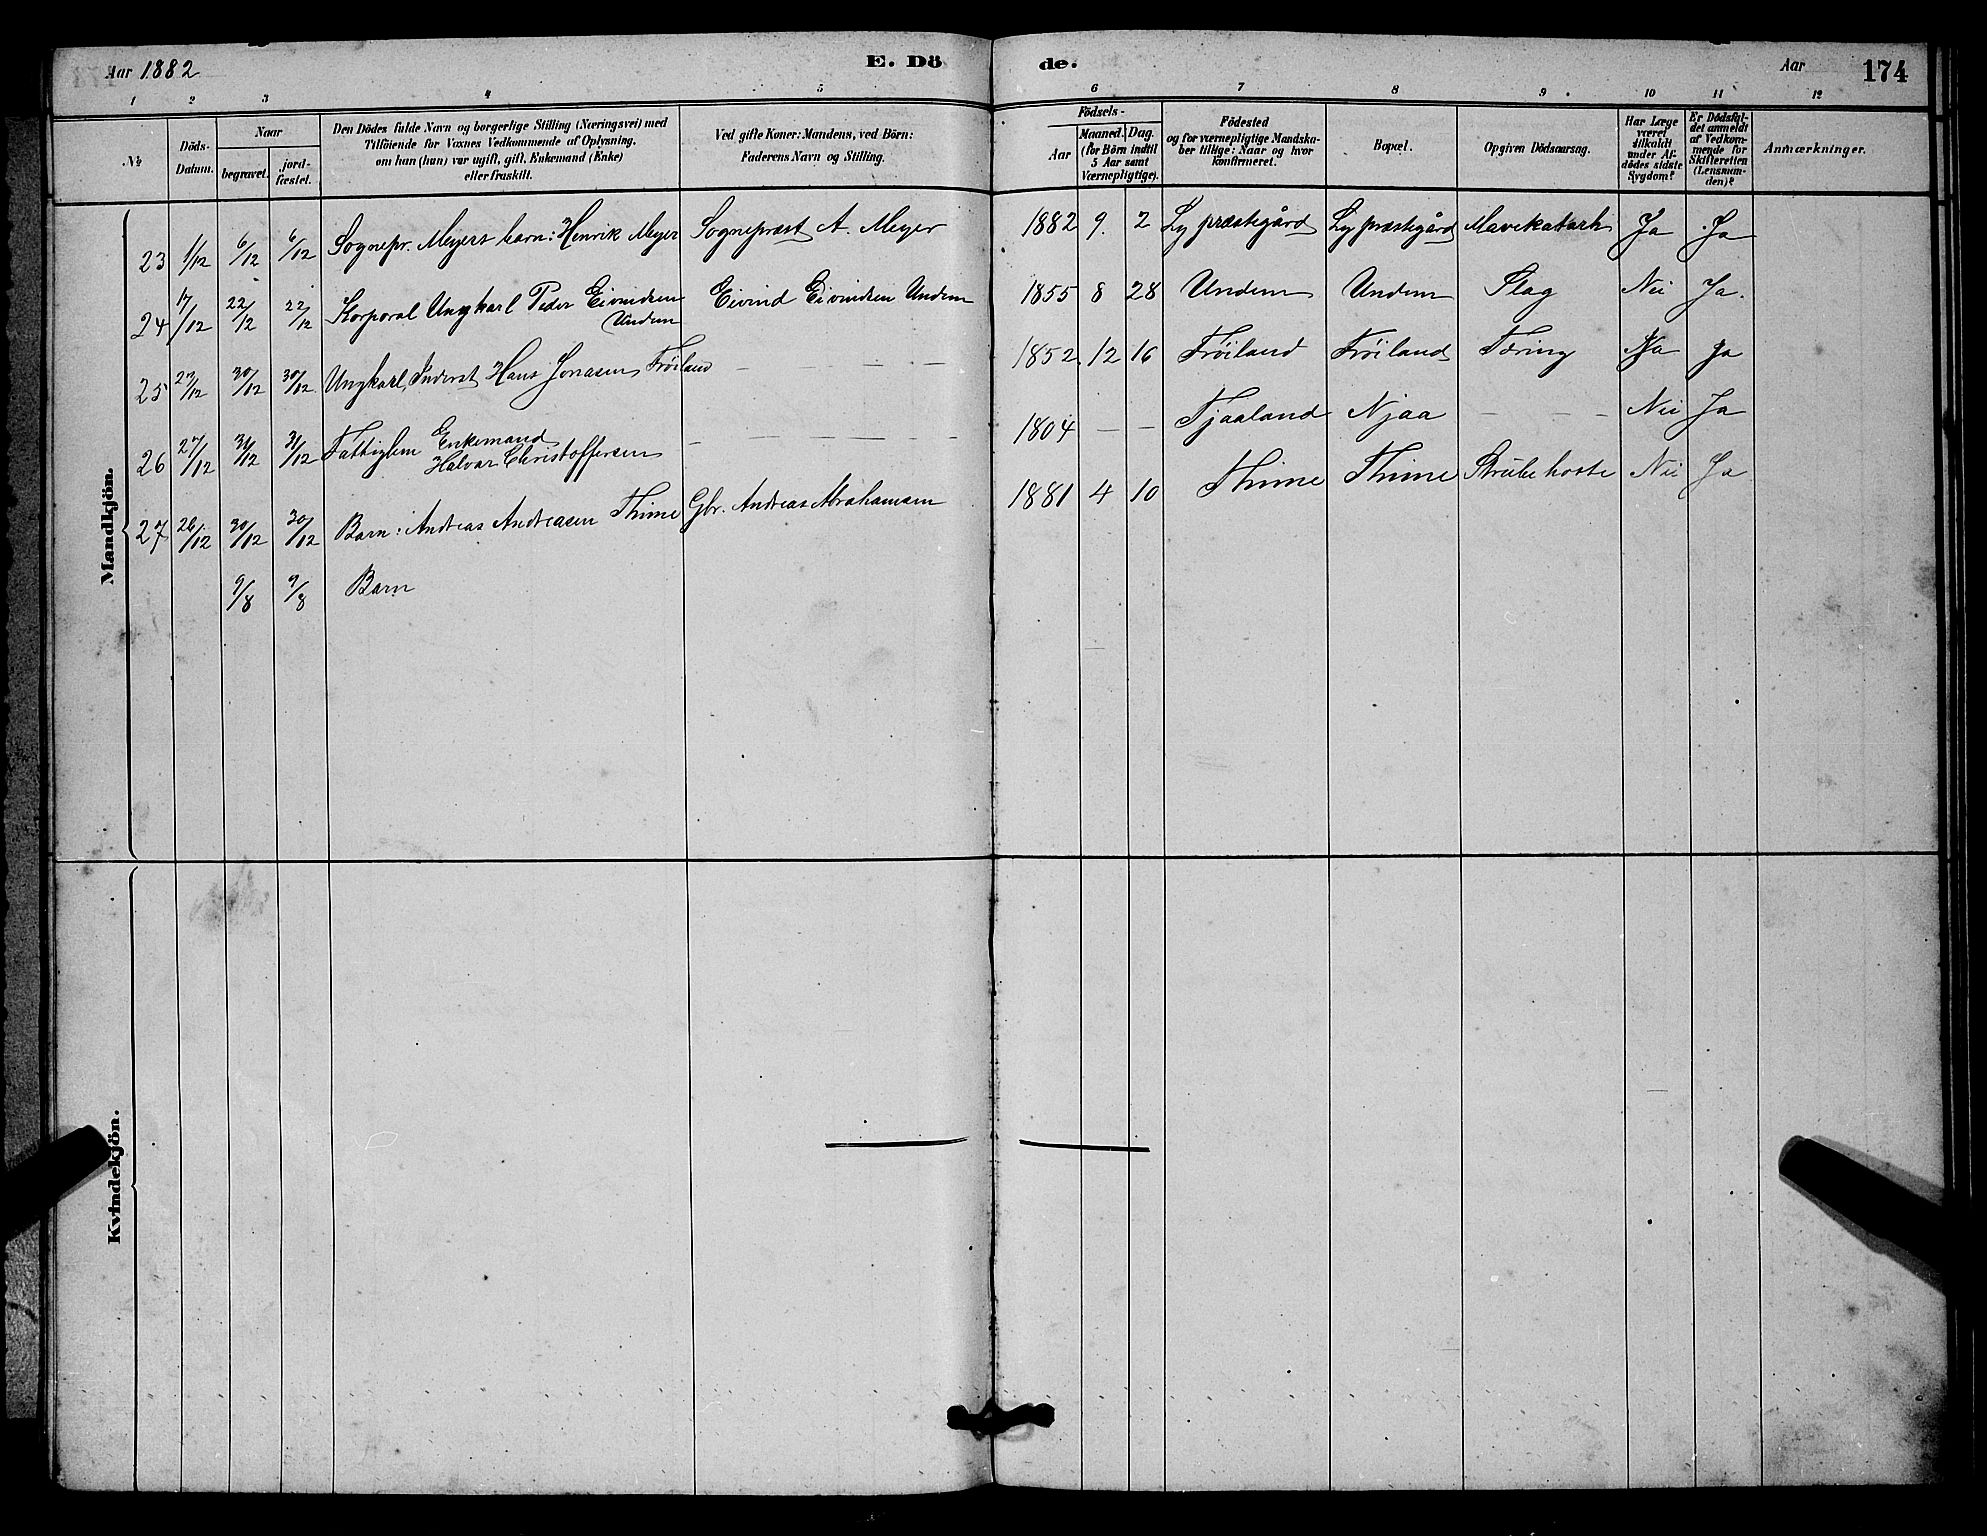 Aar 1882 E. Dö
de. Aar 174
1 2 3 4 5 6 7 8 9 10 11 12
№ Döds-Datum. Naar begravet. jord-fæstet. Den Dödes fulde Navn og borgerlige Stilling (Næringsvei) med Tilföiende for Voxnes Vedkommende af Oplysning, om han (hun) var ugift, gift, Enkemand (Enke) eller fraskilt. Ved gifte Koner: Mandens, ved Börn: Faderens Navn og Stilling. Födsels- Aar Maaned. Dag. (for Börn indtil 5 Aar samt Værnepligtige). Födested og for værnepligtige Mandskaber tillige: Naar og hvor konfirmeret. Bopæl. Opgiven Dödsaarsag. Har Læge været tilkaldt under Afdödes sidste Sygdom? Er Dödsfaldet anmeldt af Vedkommende for Skifteretten (Lensmanden)? Anmærkninger.
Mandkjön.
23 1/12 6/12 6/12 Sognepr. Meyers barn: Henrik Meyer Sognepræst A. Meyer 1882 9. 2 Ly præstegård Ly præstegård Mavekatarh Ja Ja
24 17/12 22/12 22/12 Korporal Ungkarl Peder Eivindsen Undem Eivind Eivindsen Undem 1855 8 28 Undem Undem Slag Nei Ja.
25 23/12 30/12 30/12 Ungkarl, Inderst Hans Jonasen Fröiland — — — — 1852 12 16 Fröiland Fröiland Tæring Ja Ja
26 27/12 31/12 31/12 Fattiglem Enkemand Halvor Christoffersen — — — — 1804 — — Tjaaland Njaa — — — Nei Ja
27 26/12 30/12 30/12 Barn: Andreas Andreasen Thime Gbr. Andreas Abrahamsen 1881 4 10 Thime Thime Strubehoste Nei Ja
9/8 9/8 Barn
Kvindekjön.